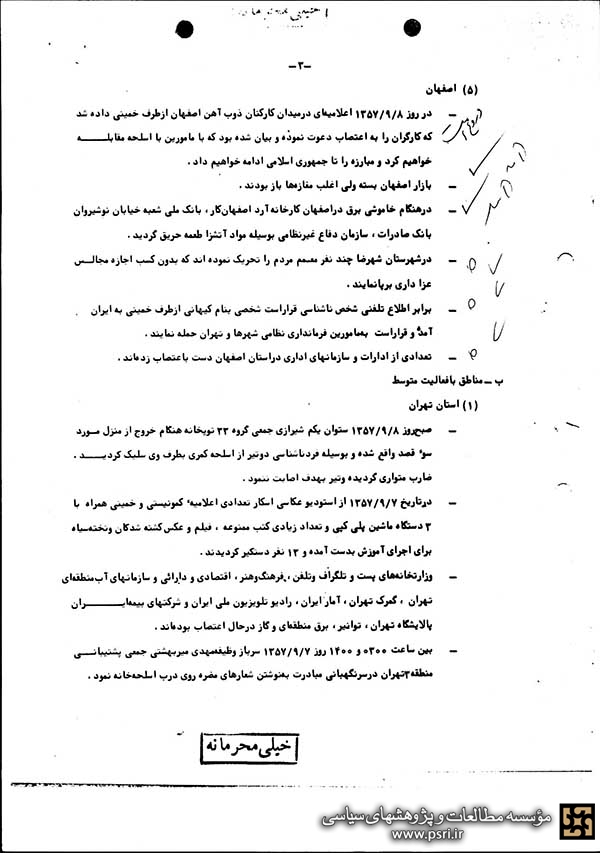 -۳-
(۵) اصفهان
- در روز ۱۳۵۷/۹/۸ اعلامیه‌ای درمیدان کارکنان ذوب آهن اصفهان ازطرف خمینی داده شد
که کارگران را به اعتصاب دعوت نموده و بیان شده بود که با مامورین با اسلحه مقابلـــه
خواهیم کرد و مبارزه را تا جمهوری اسلامی ادامه خواهیم داد .
- بازار اصفهان بسته ولی اغلب مغازه‌ها باز بودند .
- درهنگام خاموشی برق دراصفهان کارخانه آرد اصفهان‌کار ، بانک ملی شعبه خیابان نوشیروان
بانک صادرات ، سازمان دفاع غیرنظامی بوسیله مواد آتشزا طعمه حریق گردید .
- درشهرستان شهرضا چند نفر معمم مردم را تحریک نموده اند که بدون کسب اجازه مجالس
عزا داری برپانمایند .
- برابر اطلاع تلفنی شخص ناشناسی قراراست شخصی بنام کیهانی ازطرف خمینی به ایران
آمده و قراراست به‌مامورین فرمانداری نظامی شهرها و تهران حمله نمایند .
- تعدادی از ادارات و سازمانهای اداری دراستان اصفهان دست باعتصاب زده‌اند .
ب - مناطق بافعالیت متوسط
(۱) استان تهران
- صبح‌روز ۱۳۵۷/۹/۸ ستوان یکم شیرازی جمعی گروه ۳۳ توپخانه هنگام خروج از منزل مـورد
سوء قصد واقع شده و بوسیله فردناشناسی دوتیر از اسلحه کمری بطرف وی شلیک گردیـد .
ضارب متواری گردیده وتیر بهدف اصابت ننمود .
- درتاریخ ۱۳۵۷/۹/۷ از استودیو عکاسی اسکار تعدادی اعلامیه کمونیستی و خمینی همراه با
۳ دستگاه ماشین پلی کپی و تعداد زیادی کتب ممنوعه ، فیلم و عکس کشته شدگان وتخته‌سیاه
برای اجرای آموزش بدست آمده و ۱۲ نفر دستگیر گردیدند .
- وزارتخانه‌های پست و تلگراف وتلفن ، فرهنگ‌وهنر ، اقتصادی و دارائی و سازمانهای آب‌منطقه‌ای
تهران ، گمرک تهران ، آمار ایران ، رادیو تلویزیون ملی ایران و شرکتهای بیمه‌ایـــران
پالایشگاه تهران ، توانیر ، برق منطقه‌ای و گاز درحال اعتصاب بوده‌اند .
- بین ساعت ۰۳۰۰ و ۱۴۰۰ روز ۱۳۵۷/۹/۷ سرباز وظیفه‌مهدی میربهشتی جمعی پشتیبانـی
منطقه۳تهران درسرنگهبانی مبادرت به‌نوشتن شعارهای مضره روی درب اسلحه‌خانه نمود .
خیلی محرمانه
مؤسسه مطالعات و پژوهشهای سیاسی
www.psri.ir